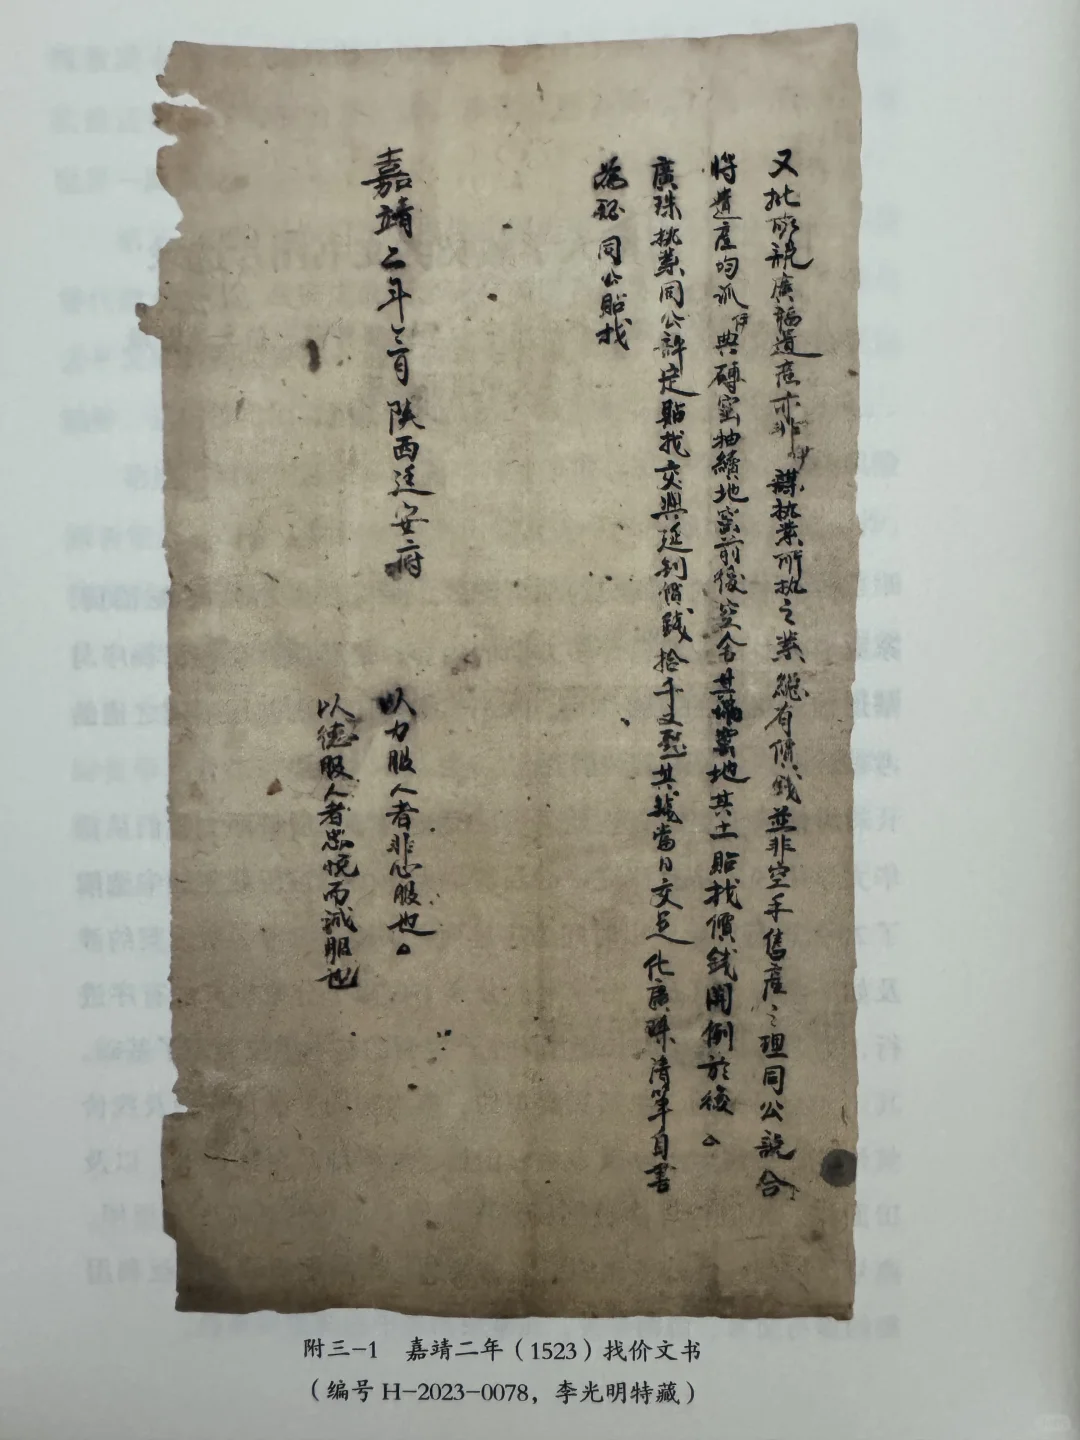 又批所說廣福遺產亦非伊謀执業所执之業總有價錢並非空手售產之理同公說合
將遺產均派伊典磚窑抽續地窑前後空舍其塌窑地其土貼找價錢開例於後
廣珠执業同公許定貼找交與延釗價錢拾千文整其錢當日交足代廣珠清筆自書
為照同公貼找
嘉靖二年三月陝西延安府
以力服人者非心服也
以德服人者忠悦而誠服也
附三-1 嘉靖二年（1523）找价文书
（编号 H-2023-0078，李光明特藏）